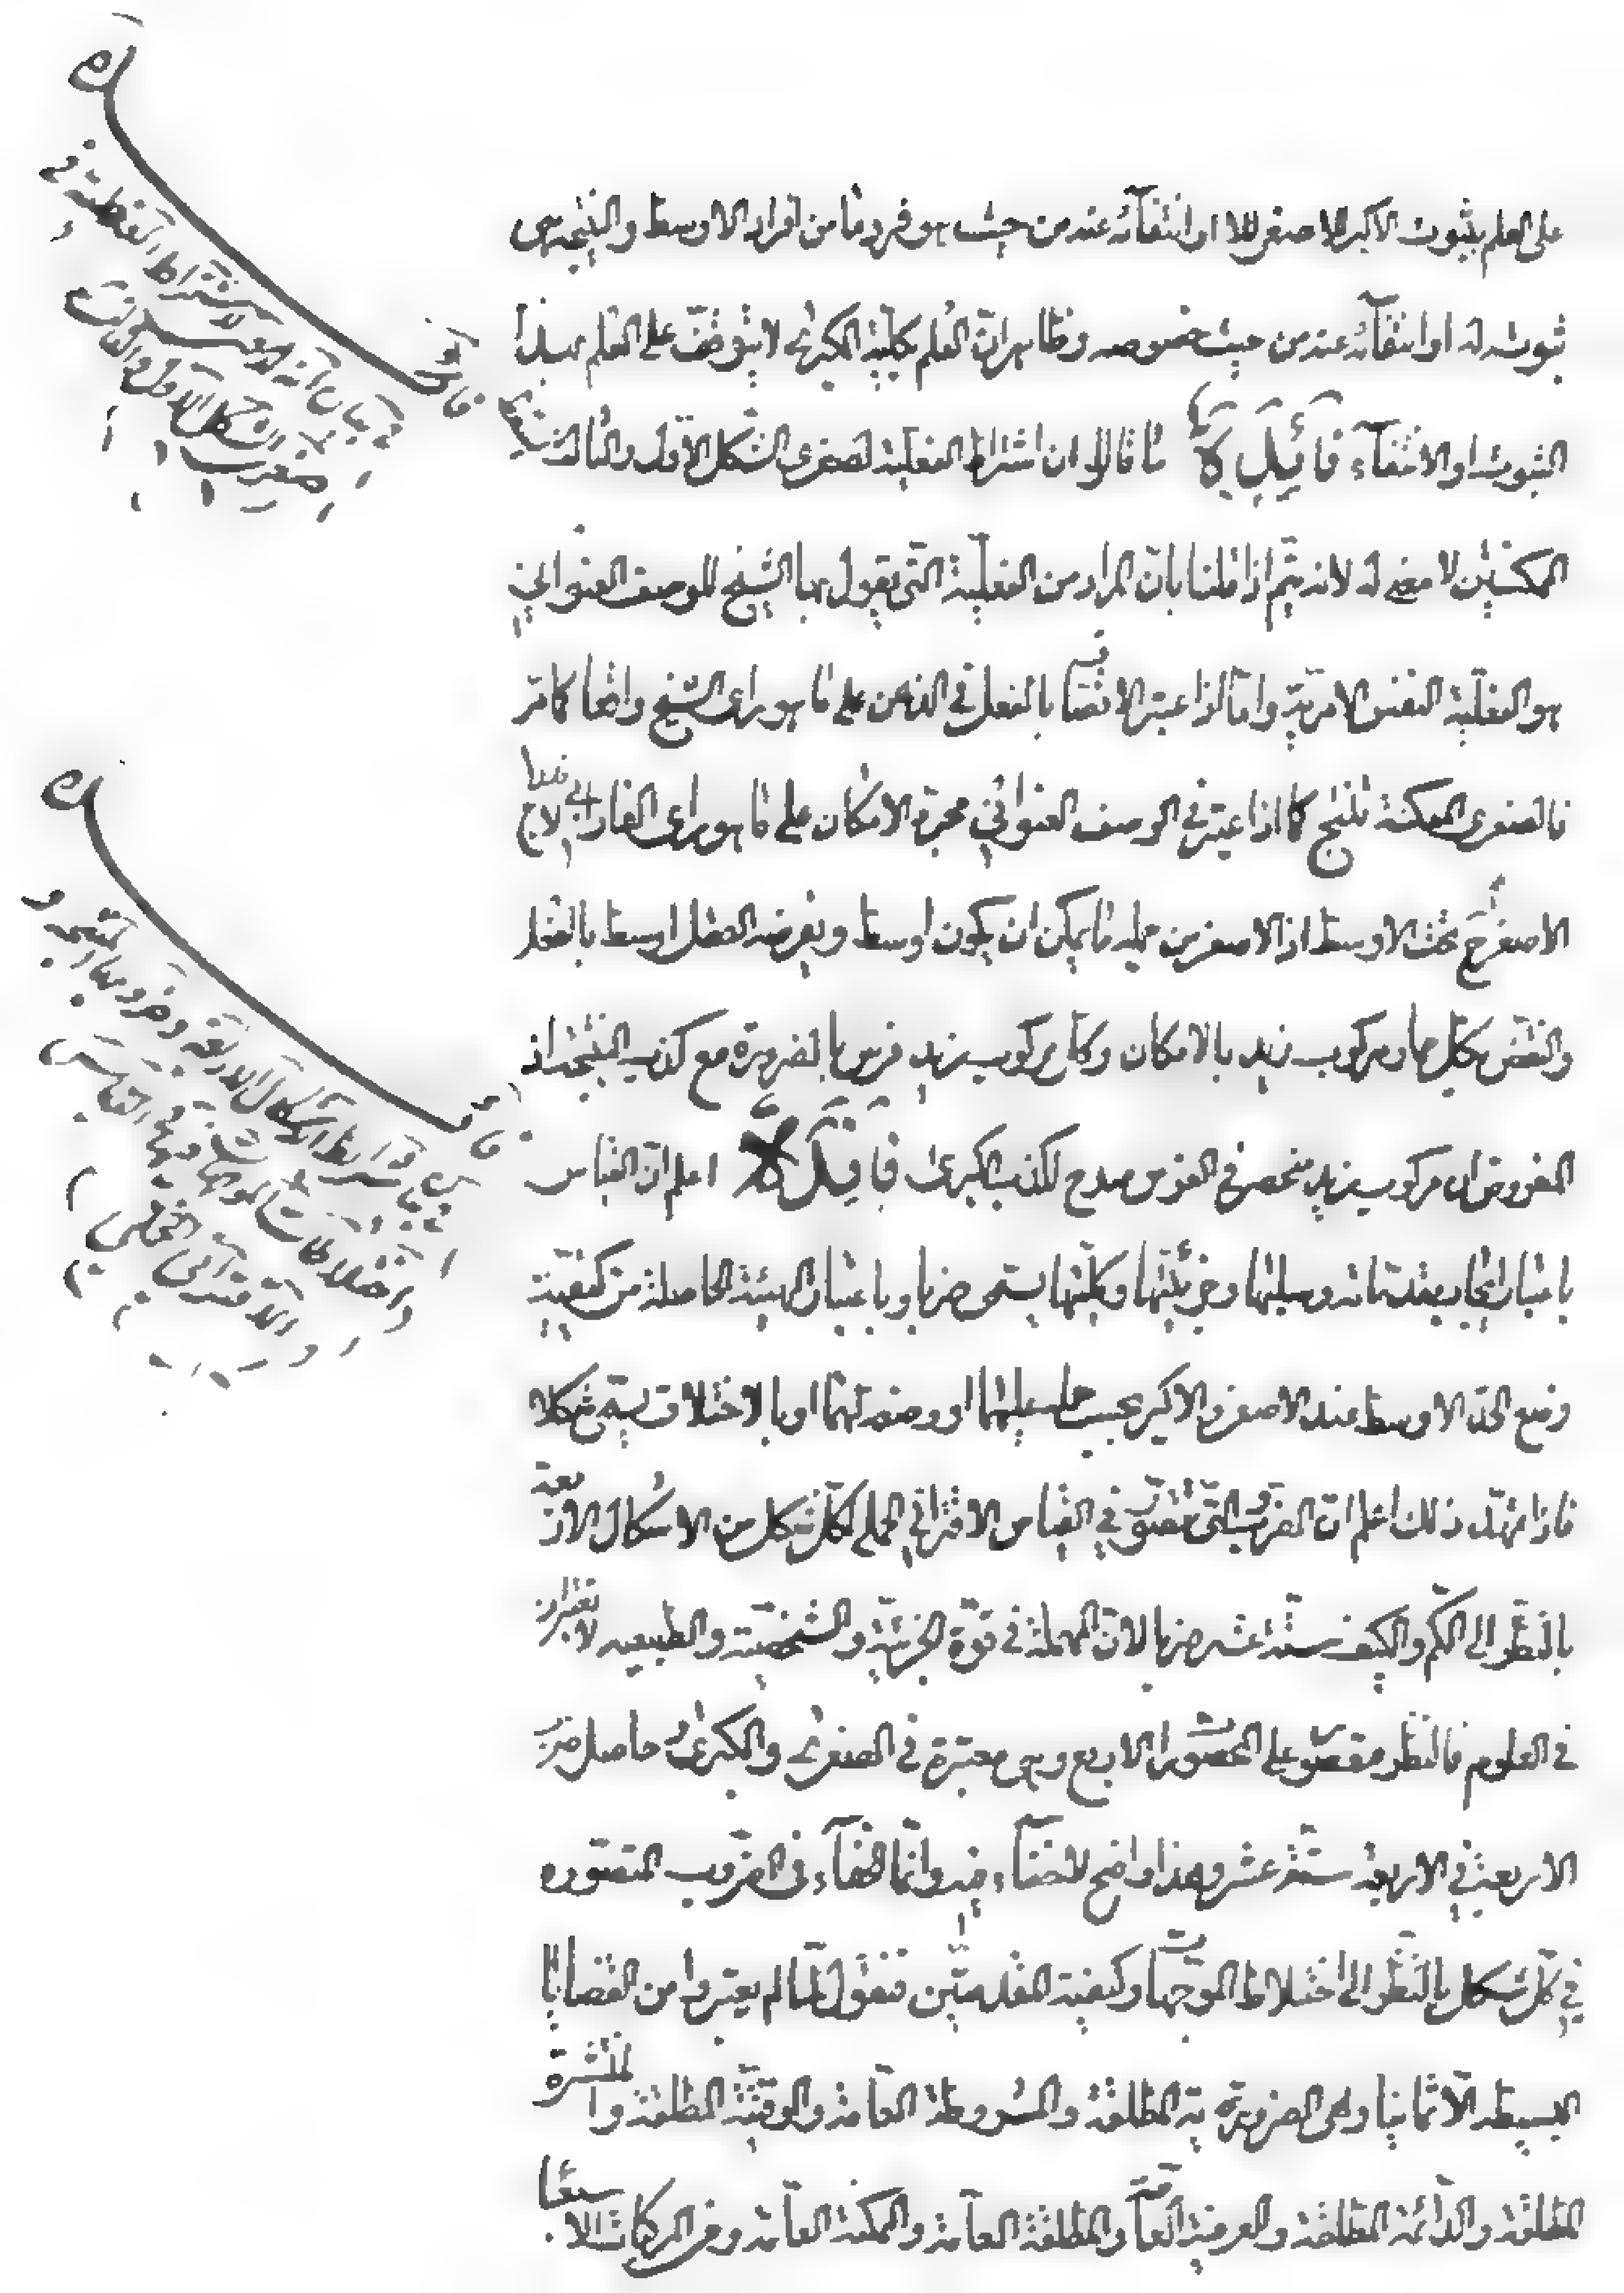 على العلم بثبوت الاكبر للاصغر او انتفائه عنه من حيث هو فرد ما من افراد الاوسط والنتيجة هى
ثبوته له او انتفآئه عنه من حيث خصوصه وظاهر ان العلم بكلية الكبرى لا يتوقف على العلم بهذا
الثبوت او الانتفآء فائدة ما قالوا ان اشتراط الفعلية لصغرى الشكل الاول والثالث
الممكنتين لا معنى له لانه يتم اذا قلنا بان المراد من الفعلية التى يقول بها الشيخ للوصف العنوانى
هو الفعلية النفس الامرية واما اذا اعتبر الاتصاف بالفعل فى الذهن على ما هو راى الشيخ واقعا كما مر
فالصغرى الممكنة تنتج كما اذا اعتبر فى الوصف العنوانى مجرد الامكان على ما هو راى الفارابى لاندراج
الاصغر ح تحت الاوسط اذ الاصغر من جملة ما يمكن ان يكون اوسط ويفرضه العقل اوسط بالفعل
والنقض بكل حمار مركوب زيد بالامكان وكل مركوب زيد فرس بالضرورة مع كذب النتيجة اذ
المفروض ان مركوب زيد منحصر فى الفرس مدفوع لكذب الكبرى فائدة اعلم ان القياس
باعتبار ايجاب مقدماته وسلبها وجزئيتها وكليتها يسمى ضربا وباعتبار الهيئة الحاصلة من كيفية
وضع الحد الاوسط عند الاصغر والاكبر بحسب حمله عليهما او وضعه لهما او بالاختلاف يسمى شكلا
فاذا تمهد ذلك اعلم ان الضروب التى تتصور فى القياس الاقترانى الحملى لكل شكل من الاشكال الاربعة
بالنظر الى الكم والكيف ستة عشر ضربا لان المهملة فى قوة الجزئية والشخصية والطبيعية لا تعتبران
فى العلوم فالنظر مقصور على المحصورات الاربع وهى معتبرة فى الصغرى والكبرى حاصل ضرب
الاربعة فى الاربعة ستة عشر وهذا واضح لا خفآء فيه وانما الخفآء فى الضروب المتصورة
فى كل شكل بالنظر الى اختلاط الموجهات وكيفية المقدمتين فنقول لما لم يعتبروا من القضايا
البسيطة الا ثمانيا وهى الضرورية المطلقة والمشروطة العامة والوقتية المطلقة والمنتشرة
المطلقة والدائمة المطلقة والعرفية العامة والمطلقة العامة والممكنة العامة ومن المركبات الا سبعا
فائدة
فى بيان انه لا معنى لاشتراط الفعلية فى
صغرى الشكل الاول والثالث
فائدة
فى شرايط الاشكال الاربعة وضروبها المنتجة و
اختلاطات الموجهات فيها فى القياس
الاقترانى الحملى